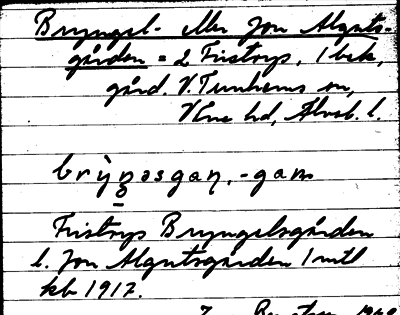 Bryngel- eller Jon Alguts-
gården = 2 Fristorp, 1 bek,
gård. V. Tunhems sn,
Väne hd, Älvsb. l.
brỳŋəsgaṇ, -gaɷ
Fristorps Bryngelsgården
l. Jon Algutsgården 1 mtl
kb 1917.